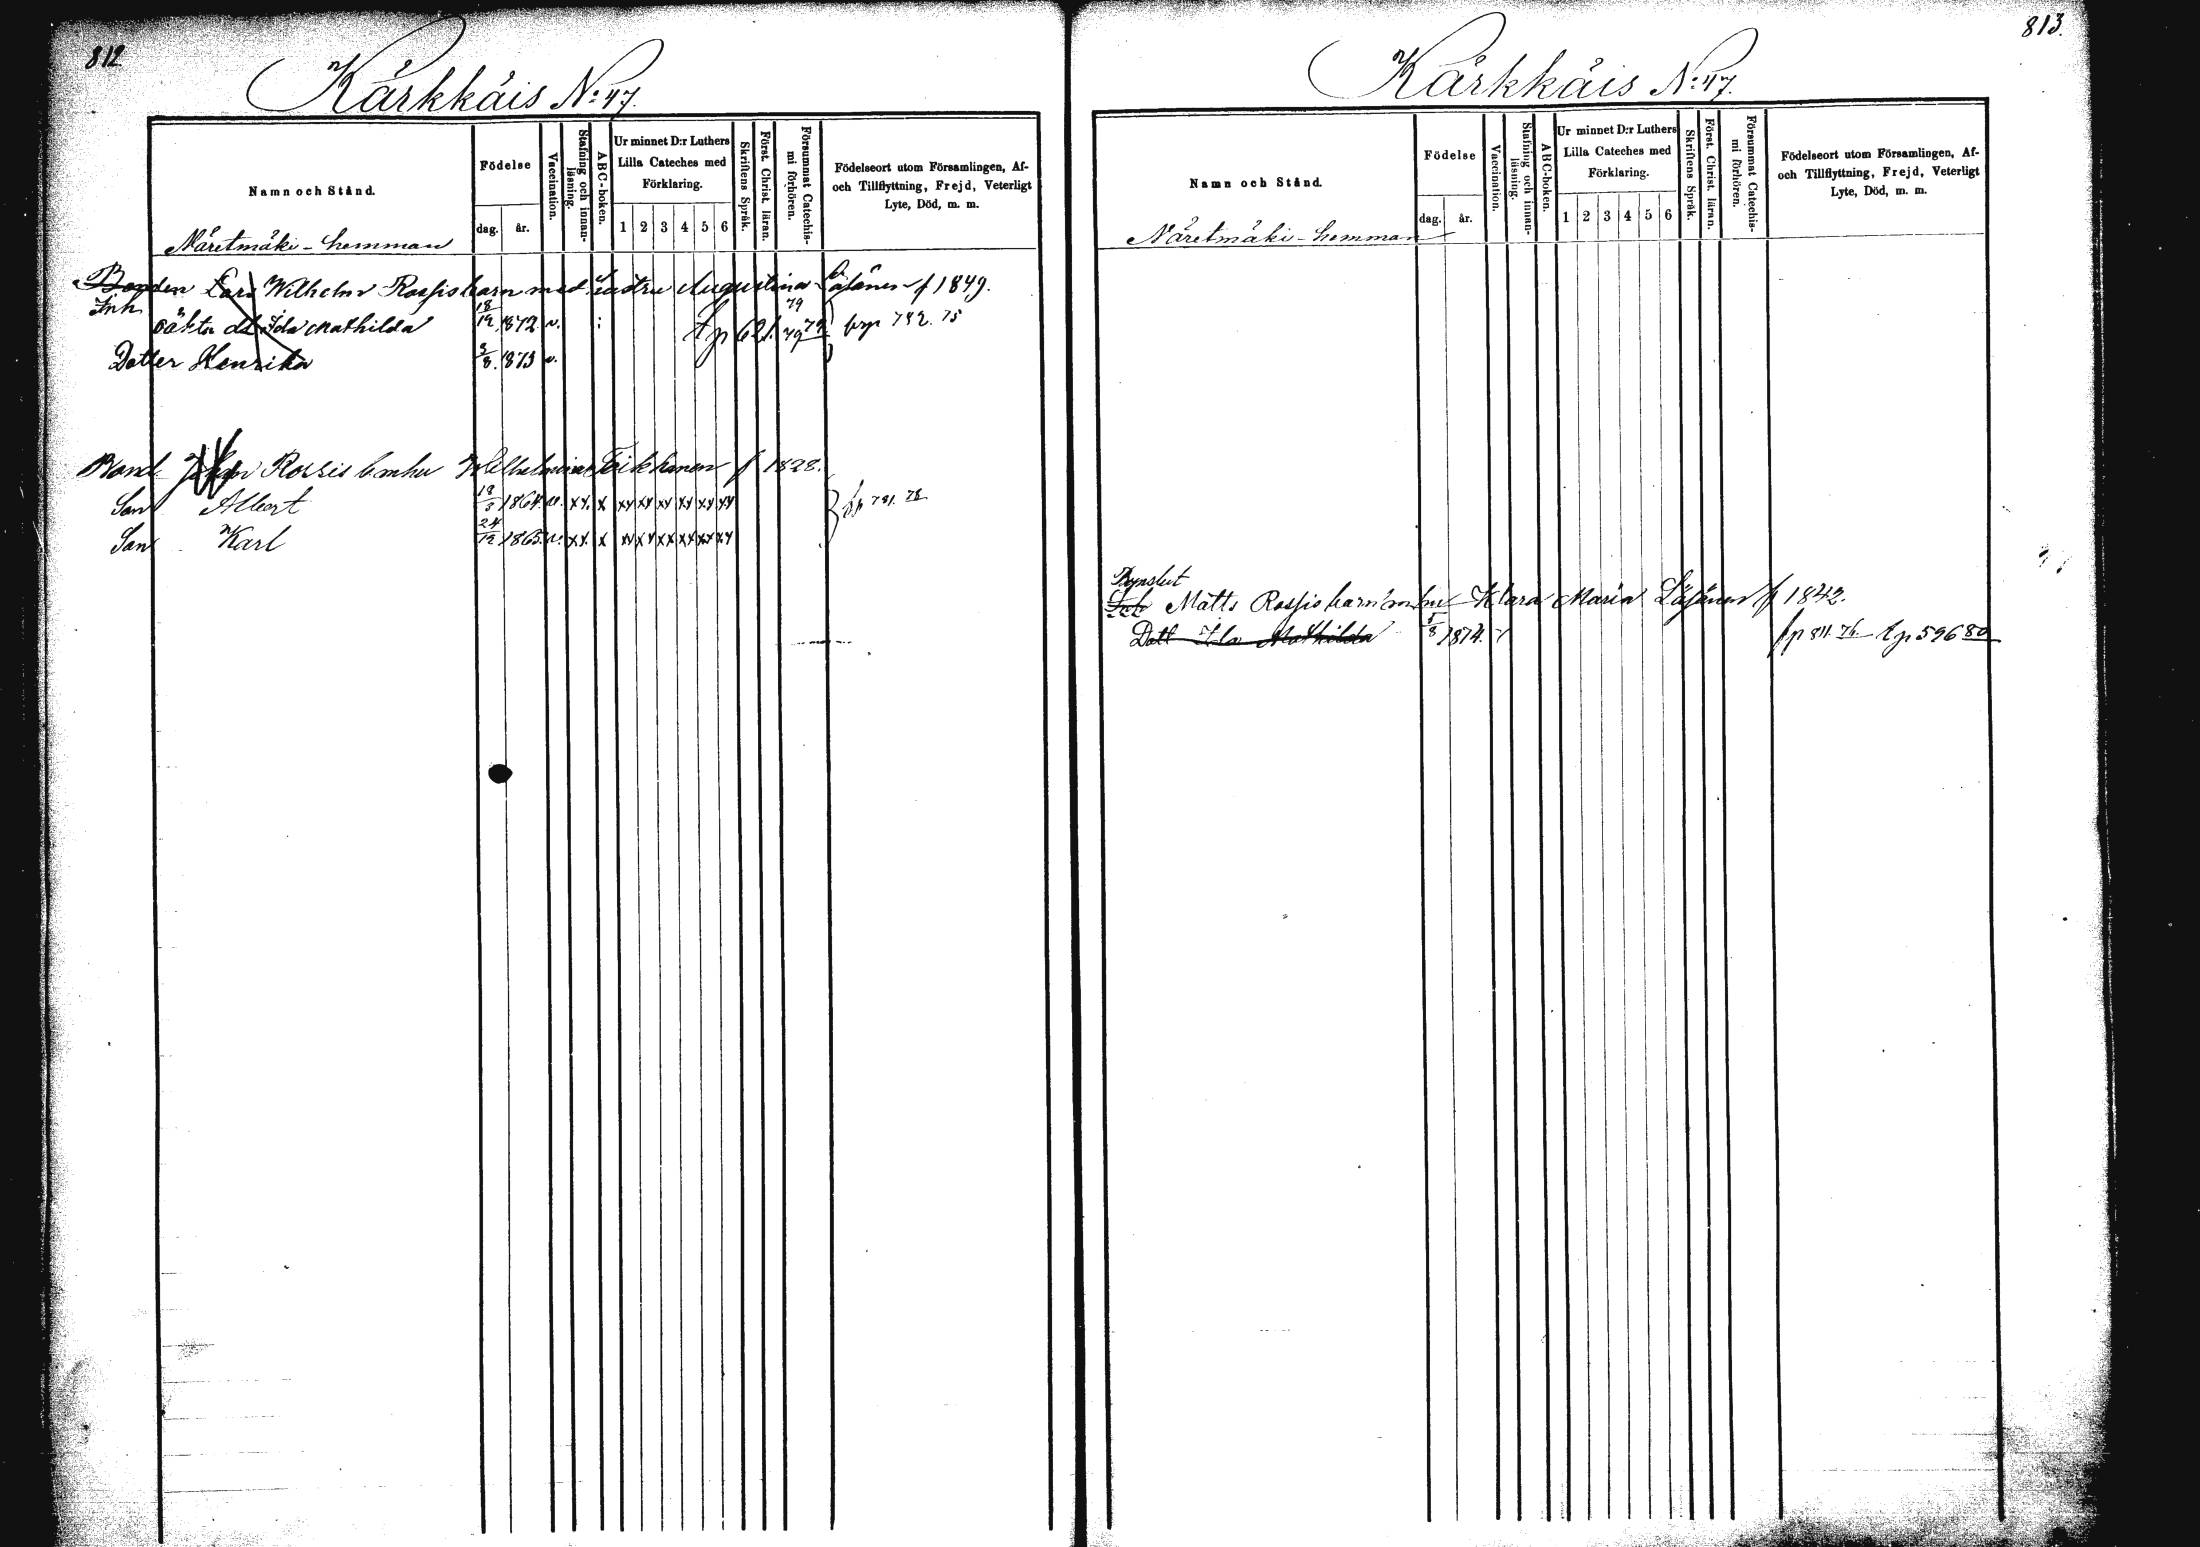 812
Kärkkäis No: 47.
Namn och Stånd.
Födelse
dag.
år.
Vaccination.
Stafning och innan-
läsning.
ABC-boken.
Ur minnet D:r Luthers
Lilla Cateches med
Förklaring.
1 2 3 4 5 6
Skriftens Språk.
Först. Christ. läran.
Försummat Catechis-
mi förhören.
Födelseort utom Församlingen, Af-
och Tillflyttning, Frejd, Veterligt
Lyte, Död, m. m.
Näretmäki - hemman
Bonden Lars Wilhelm Rossis barn med Augustina f 1849.
Inh
oäkta dt Ida Mathilda 18/12 1872 v. t p 621. 79 79 782. 75
Dotter Henrika 3/8. 1873 v.
Bond. Johan Rossis b m hu Wilhelmina f 1828.
Son Albert 18/3 1864. v. xx. x xy xy xy xy xy xy fp 781. 78
Son Karl 24/12 1865. v. xx. x xy xy xx xx xx xy
813.
Kärkkäis No: 47.
Namn och Stånd.
Födelse
dag.
år.
Vaccination.
Stafning och innan-
läsning.
ABC-boken.
Ur minnet D:r Luthers
Lilla Cateches med
Förklaring.
1 2 3 4 5 6
Skriftens Språk.
Först. Christ. läran.
Försummat Catechis-
mi förhören.
Födelseort utom Församlingen, Af-
och Tillflyttning, Frejd, Veterligt
Lyte, Död, m. m.
Näretmäki - hemman
Inh Matts Rossis barn m hu Klara Maria f 1842.
Dott Ida Mathilda 5/8 1874. fp 811. 76. tp 596 80